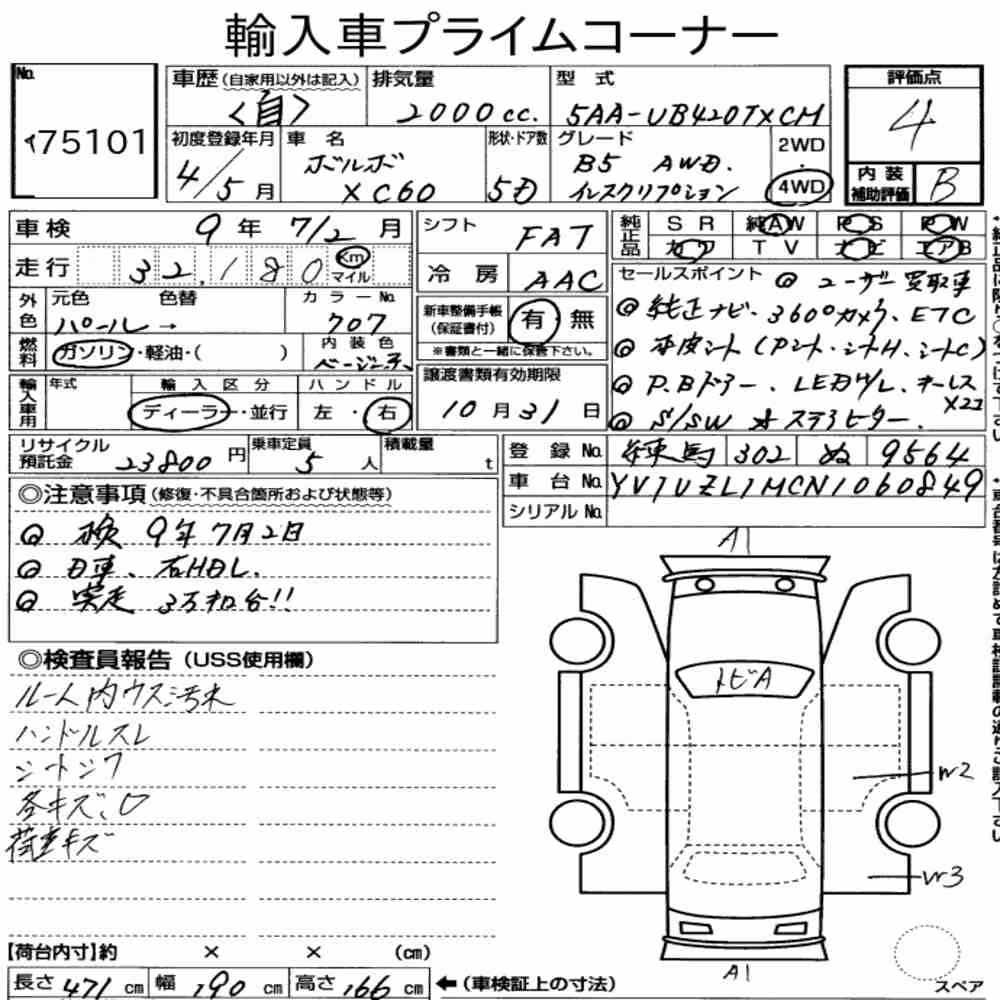 輸入車プライムコーナー
No.
75101
車歴(自家用以外は記入)
<自>
排気量
2000cc.
型式
5AA-UB420TXCM
評価点
4
初度登録年月
4/5月
車名
ボルボ
XC60
形状・ドア数
5D
グレード
B5 AWD.
インスクリプション
2WD
・
4WD
内装
補助評価
B
車検 9年 7/2月
走行 32,180 Km マイル
シフト FAT
冷房 AAC
純正品 SR 純AW PS PW
カワ TV ナビ エアB
セールスポイント ◎ユーザー買取車
◎純正ナビ・360°カメラ・ETC
◎本皮シート(Pシート・シートH、シートC)
◎P.Bドアー、LEDH/L、キーレス×2コ
◎S/SW オステアヒーター.
外色 元色 色替 カラーNo.
パール→ 707
燃料 ガソリン・軽油・( )
内装色
ベージュ系
新車整備手帳
(保証書付)
有 無
※書類と一緒に保管下さい。
輸入車用 年式 輸入区分 ハンドル
ディーラー・並行 左・右
譲渡書類有効期限
10月31日
リサイクル
預託金 23800円
乗車定員 5人
積載量 t
登録No. 練馬 302 ぬ 9564
車台No. YV1UZL1MCN1060849
シリアルNo.
◎注意事項(修復・不具合箇所および状態等)
◎検 9年7月2日
◎D車、右HDL.
◎実走 3万和台!!
◎検査員報告(USS使用欄)
ルーム内ウス汚れ
ハンドルスレ
シートシワ
各キズ、凹
荷室キズ
A1
トビA
W2
W3
A1
スペア
【荷台内寸】約 × × (cm)
長さ 471cm 幅 190cm 高さ 166cm ←(車検証上の寸法)